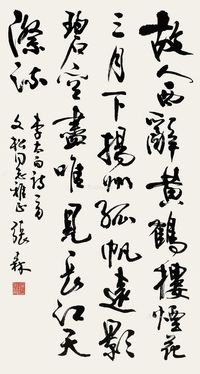 故人西辭黃鶴樓煙花
三月下揚州孤帆遠影
碧空盡唯見長江天
際流
李太白詩一首
文松同志雅正 張森